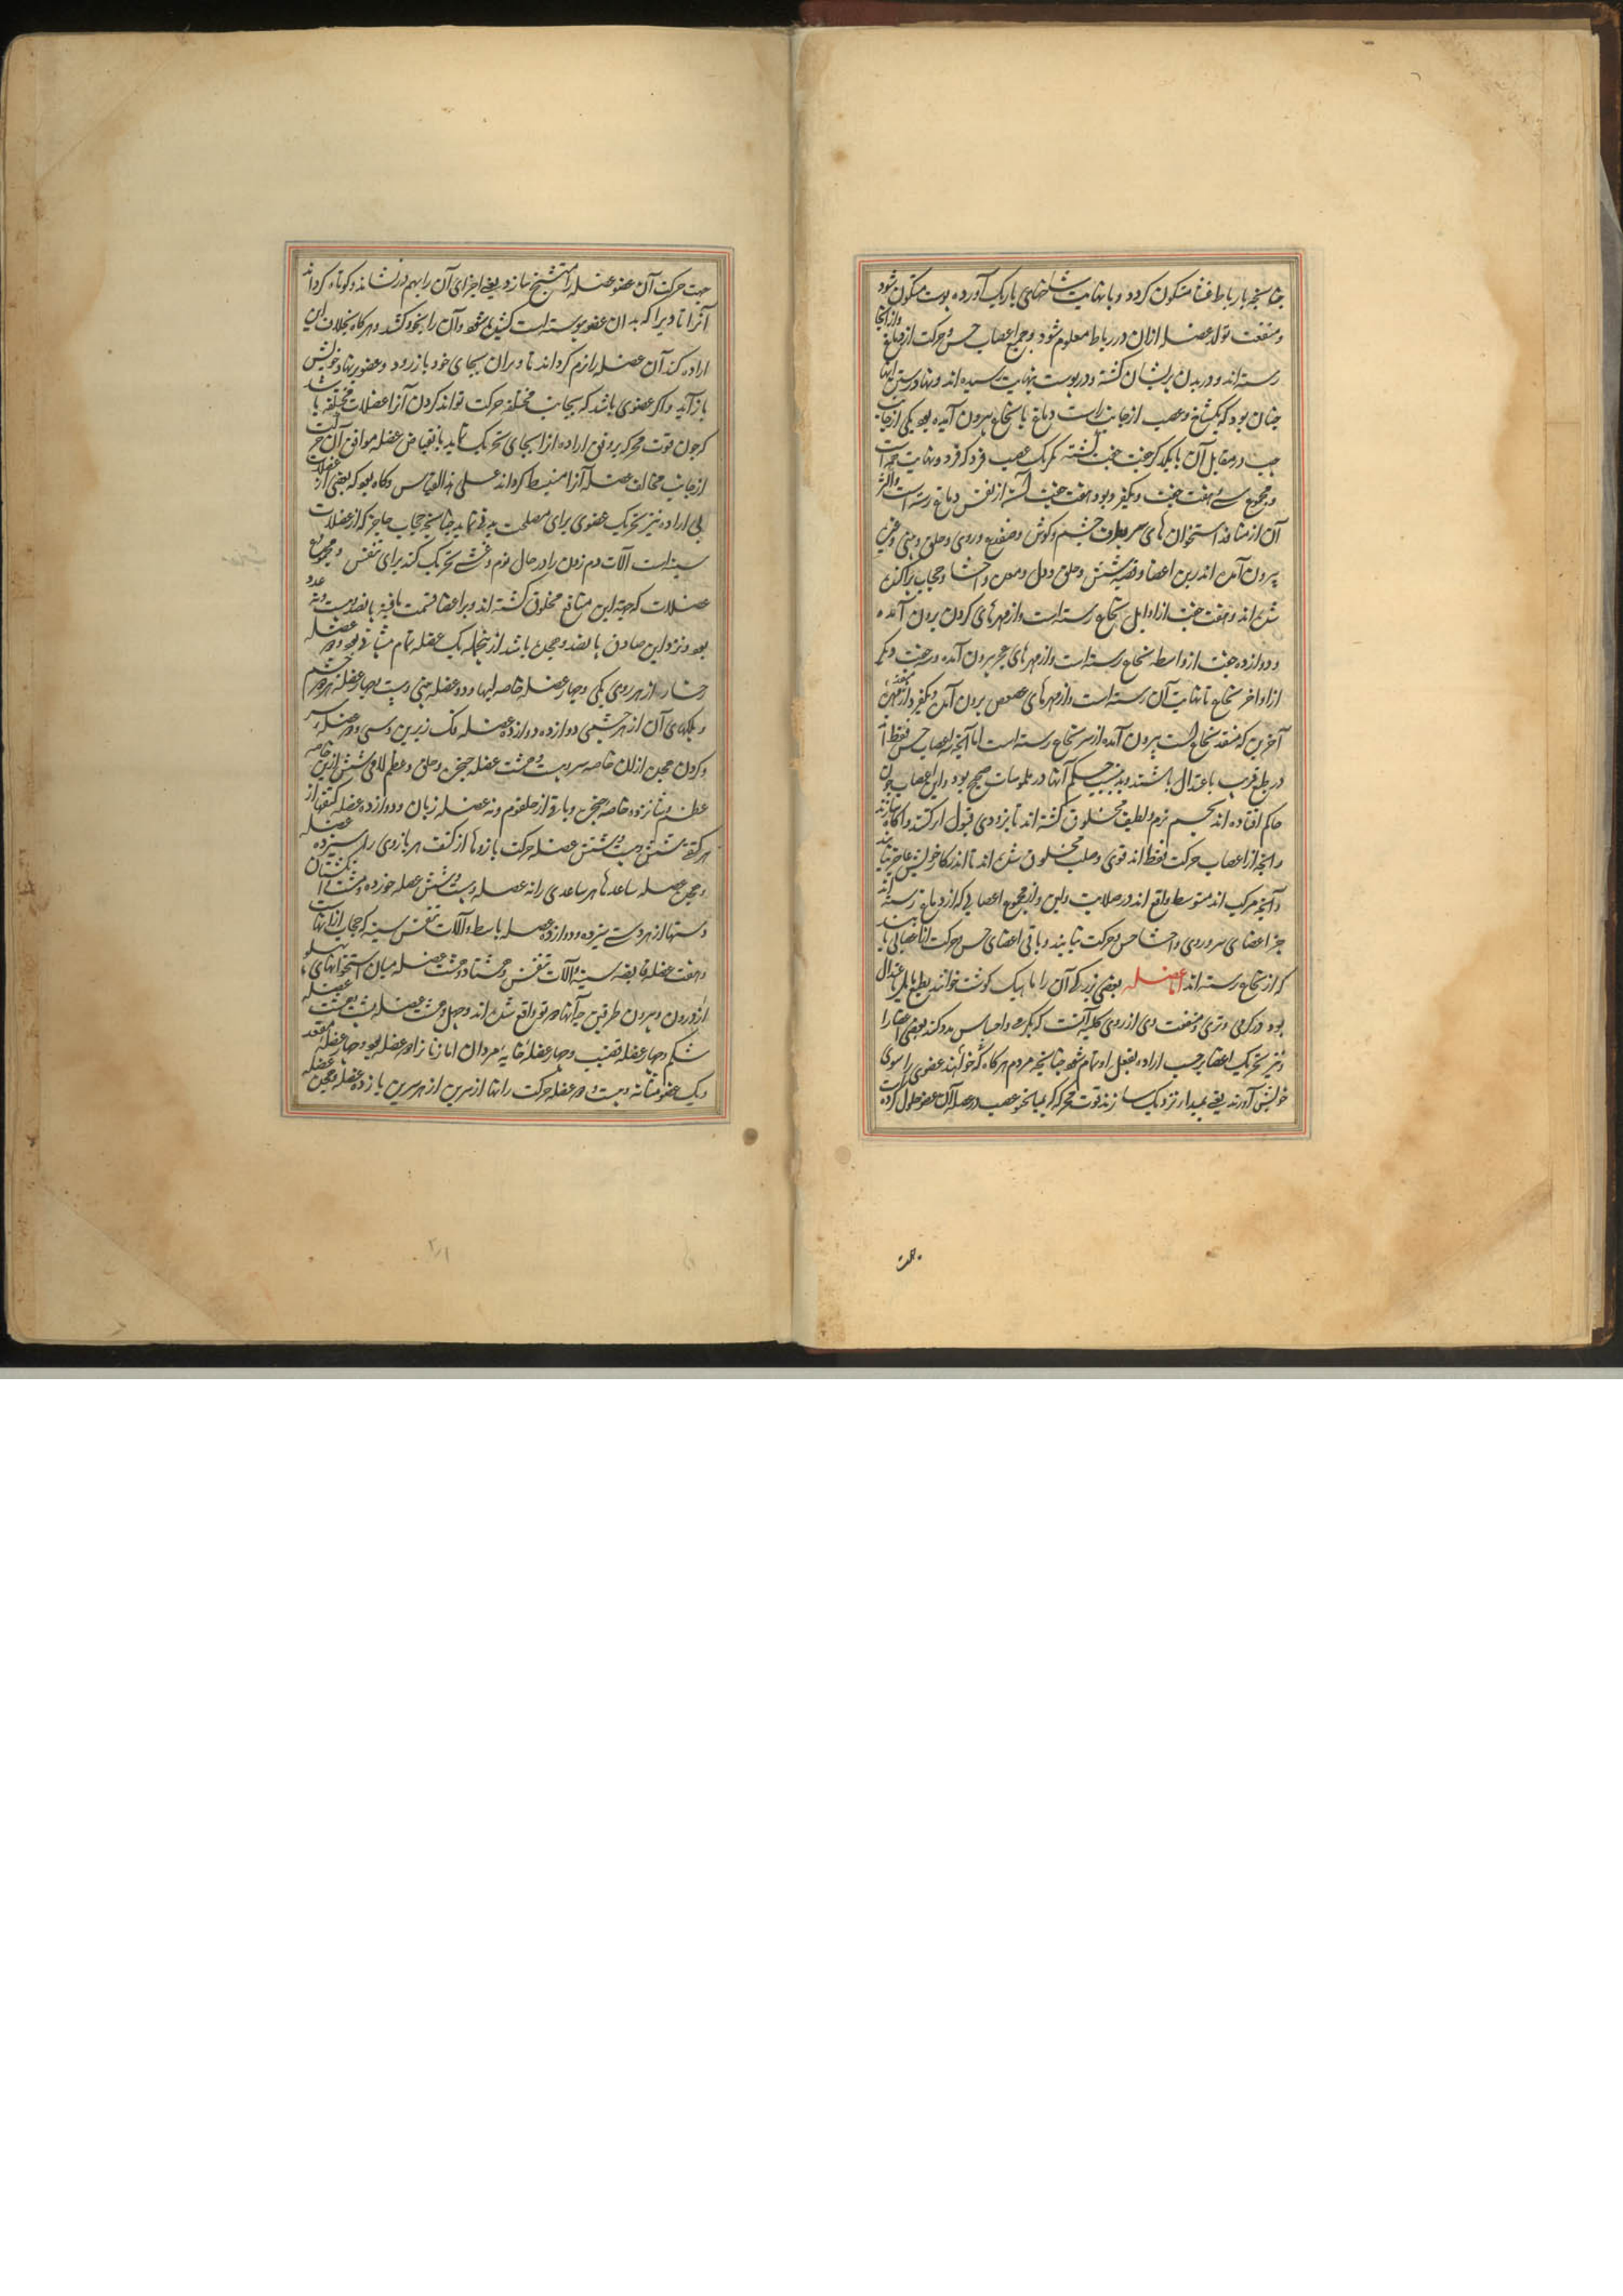 چنانچه باربا ط غشا متکون کردد و با نهایت شاخهای باریک آورده پوست متکون شود
و منفعت تولد عضله ازان در رباط معلوم شود و جمیع اعصاب حس و حرکت از دماغ وازانجا
رسته اند و در بدن پریشان کشته و در پوست بنهایت رسیده اند و نهاد رستن انها
چنان بود که یکشاخ و عصب از جانب راست دماغ یا نخاع بیرون آمده بود یکی از جانب
چپ در مقابل آن با یکدکر جفت جفت کشته مکر یک عصب فرد که فرد و نهایت جداست
و مجموع سی و هفت جفت و یکفرد بود و هفت جفت آن از نفس دماغ رسته است و اکثر
آن از منافذ استخوان های سر بطرف چشم و کوش و صدغ و روی و حلق و بینی و غیره
بیرون آمده اندرین اعضا و قصبه شش و حلق و دل و معده و احشا و حجاب پراکنده
شده اند و هفت جفت از اوایل نخاع رسته است و از مهرهای کردن برون آمده
و دوازده جفت از واسطه نخاع رسته است و از مهرهای عجز برون آمده و سه جفت دیکر
از اواخر نخاع تا نهایت آن رسته است و از مهرهای عصعص برون آمده و یکفرد از مهره
آخرین که منفذ نخاع است بیرون آمده از سر نخاع رسته است اما آنچه اعصاب حس فقط اند
در طبع قریب باعتدال باشند و بدین سبب حکم آنها در ملموسات صحیح بود و این اعصاب چون
حاکم افتاده اند بجسم نرم و لطیف مخلوق کشته اند تا بزودی قبول اثر کنند و آکاه سازند
و انچه از اعصاب حرکت فقط اند قوی و صلب مخلوق شده اند تا اندر کار خویش عاجز نیایند
و آنچه مرکب اند متوسط واقع اند در صلابت و لین و از مجموع اعصابی که از دماغ رسته اند
جز اعضای سر و روی و احشا حس و حرکت نیابند و باقی اعضای حس و حرکت از اعصابی یابند
که از نخاع رسته اند اما عضله بعضی زیرکی آن را ماهیک کوشت خوانند بطبع مایل باعتدال
بود در کرمی و تری و منفعت وی از روی کلیه آنست که بکرمی و احساس مدد کند بعضی اعضا را
و نیز تحریک اعضا بر حسب اراده بفعل او تمام شود چنانچه مردم هرکاه که خواهند عضوی را سوی
خویش آورند یعنی بمبداء نزدیک سازند قوت محرکه که بمیانجی عصب در عضله آن عضو حلول کرده
جهت حرکت آن عضو عضله را متشنج سازد یعنی اجزای آن را بهم درنشاند و کوتاه کرداند
آنرا تا وتر را که بدان عضو پیوسته است کشیده شود و آن را بخود کشد و هرکاه بخلاف این
اراده کند آن عضله را نرم کرداند تا وتر ان بجای خود باز رود و عضو بنهاد خویش
باز آید و اکر عضوی باشد که بجانب مختلفه حرکت تواند کردن آنرا عضلات مختلفه باشد
که چون قوت محرکه بر وفق اراده انرا بجای تحریک نماید بانقباض عضله موافق آن حرکت
از جانب مخالف عضله آنرا منبسط کرداند علی هذا القیاس و کاه بود که بعضی از عضلات
بی اراده نیز تحریک عضوی برای مصلحت بدنی نماید چنانچه حجاب حاجز که از عضلات
سینه است آلات دم زدن را در حال نوم و غشی تحریک کند برای تنفس و مجموع
عضلات که جهت این منافع مخلوق کشته اند و بر اعضا قسمت یافته پانصد و بیست و نه عدد
بود و نزد این صادق پانصد و هجده باشد از انجمله یک عضله تمام پیشانی بود و دو عضله
رخسار از هر روی یکی و چهار عضله خاصه لبها و دو عضله بینی و بیست و چهار عضله هر دو چشم
و پلکهای آن از هر چشمی دوازده و دوازده عضله فک زیرین و سی و دو عضله سر
و کردن هجده ازان خاصه سر و بیست و هشت عضله حنجره و حلق و عظم لامی شش ازین خاصه
عظم و شانزده خاصه حنجره و باقی از حلقوم و نه عضله زبان و دوازده عضله کتفها از
هر کتفی شش و بیست و شش عضله حرکت بازوها از کتف هر بازوی را سیزده عضله
و هجده عضله ساعدها هر ساعدی را نه عضله و بیست و شش عضله خورده دست و انکشتان
دستها از هر دستی سیزده و دوازده عضله باسطه آلات تنفس سینه که حجاب ازانهاست
و هفت عضله قابضه سینه و آلات تنفس و هشتاد و هشت عضله میان استخوانهای پهلو
از درون و برون طرفین چه آنها دو تو واقع شده اند و چهل و هشت عضله پشت هشت عضله
شکم و چهار عضله قضیب و چهار عضله خایه مردان اما زنانرا دو عضله بود و چهار عضله مقعد
و یک عضو مثانه و بیست و دو عضله حرکت رانها از سرین از هر سرین یازده عضله و هجده عضله